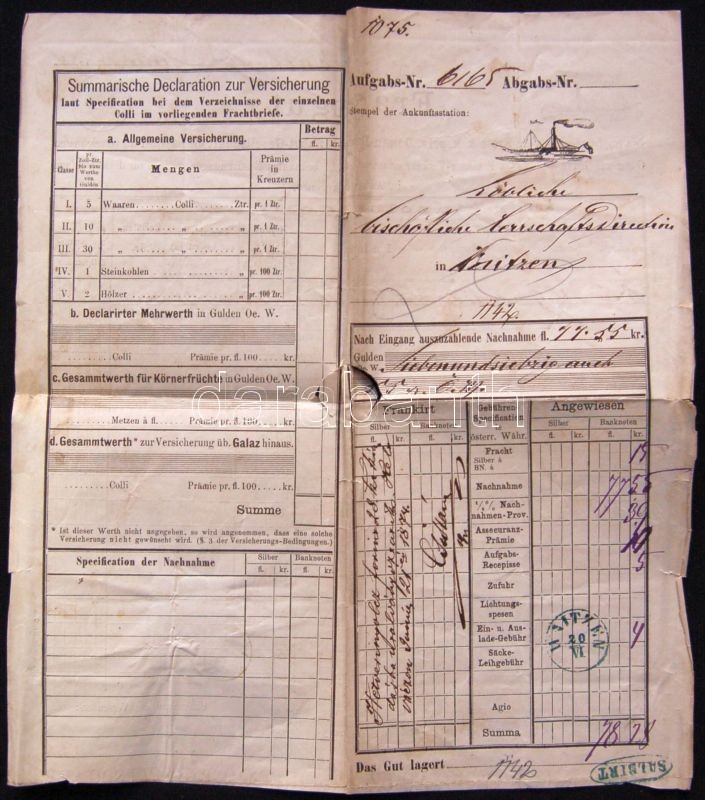 1075.
Summarische Declaration zur Versicherung
laut Specification bei dem Verzeichnisse der einzelnen
Colli im vorliegenden Frachtbriefe.
a. Allgemeine Versicherung.
Betrag
fl. kr.
Classe
pr. Zoll-Ztr. bis zum Werthe von Gulden
Mengen
Prämie in Kreuzern
I. 5 Waaren ........ Colli ...... Ztr. pr. 1 Ztr.
II. 10 „ „ „ pr. 1 Ztr.
III. 30 „ „ „ pr. 1 Ztr.
*IV. 1 Steinkohlen „ pr. 100 Ztr.
V. 2 Hölzer „ pr. 100 Ztr.
b. Declarirter Mehrwerth in Gulden Oe. W.
Colli Prämie pr. fl. 100 kr.
c. Gesammtwerth für Körnerfrüchte in Gulden Oe. W.
Metzen à fl. Prämie pr. fl. 100 kr.
d. Gesammtwerth* zur Versicherung üb. Galaz hinaus.
Colli Prämie pr. fl. 100 kr.
Summe
* Ist dieser Werth nicht angegeben, so wird angenommen, dass eine solche
Versicherung nicht gewünscht wird. (§. 3 der Versicherungs-Bedingungen.)
Specification der Nachnahme
Silber Banknoten
fl. kr. fl. kr.
Aufgabs-Nr. 6165 Abgabs-Nr.
Stempel der Ankunftsstation:
Löbliche
bischöfliche Herrschaftsdirection
in Waitzen
1742.
Nach Eingang auszuzahlende Nachnahme fl. 77.55 kr.
Gulden
Oe. W. Siebenundsiebzig auch
55
Frankirt
Silber Banknoten
fl. kr. fl. kr.
Gebühren-Specification
österr. Währ.
Angewiesen
Silber Banknoten
fl. kr. fl. kr.
Fracht 15
Silber à
BN. à
Nachnahme 77 55
½% Nachnahmen-Prov. 39
Assecuranz-Prämie 10
Aufgabs-Recepisse 5
Zufuhr
Lichtungsspesen
Ein- u. Auslade-Gebühr 4
Säcke-Leihgebühr
Agio
Summa 78 28
1874
WAITZEN
20
VI
Das Gut lagert 1742
SALDIRT
darabanth